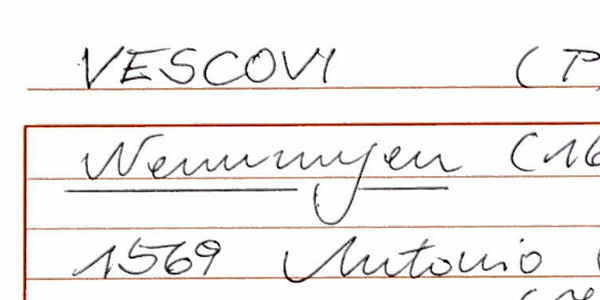 VESCOVI (P
Nemmingen (16
1569 Antonio (